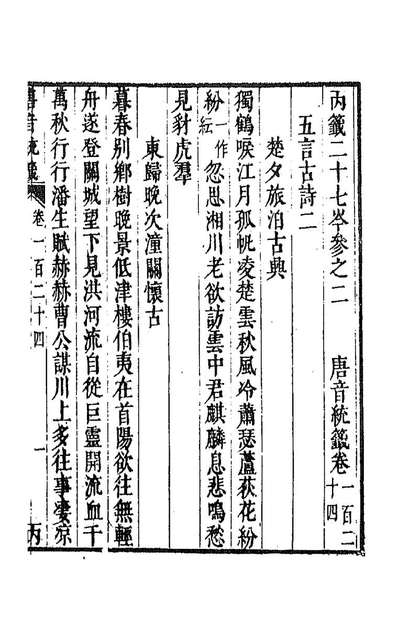 丙籖二十七岑參之二　唐音統籖卷一百二十四
五言古詩二
楚夕旅泊古興
獨鶴唳江月孤帆凌楚雲秋風冷蕭瑟蘆荻花紛
紛一作紅忽思湘川老欲訪雲中君麒麟息悲鳴愁
見豺虎羣
東歸晚次潼關懷古
暮春别鄉樹晚景低津樓伯夷在首陽欲往無輕
舟遂登關城望下見洪河流自從巨靈開流血千
萬秋行行潘生賦赫赫曹公謀川上多往事凄涼
唐音統籖 卷一百二十四 一 丙